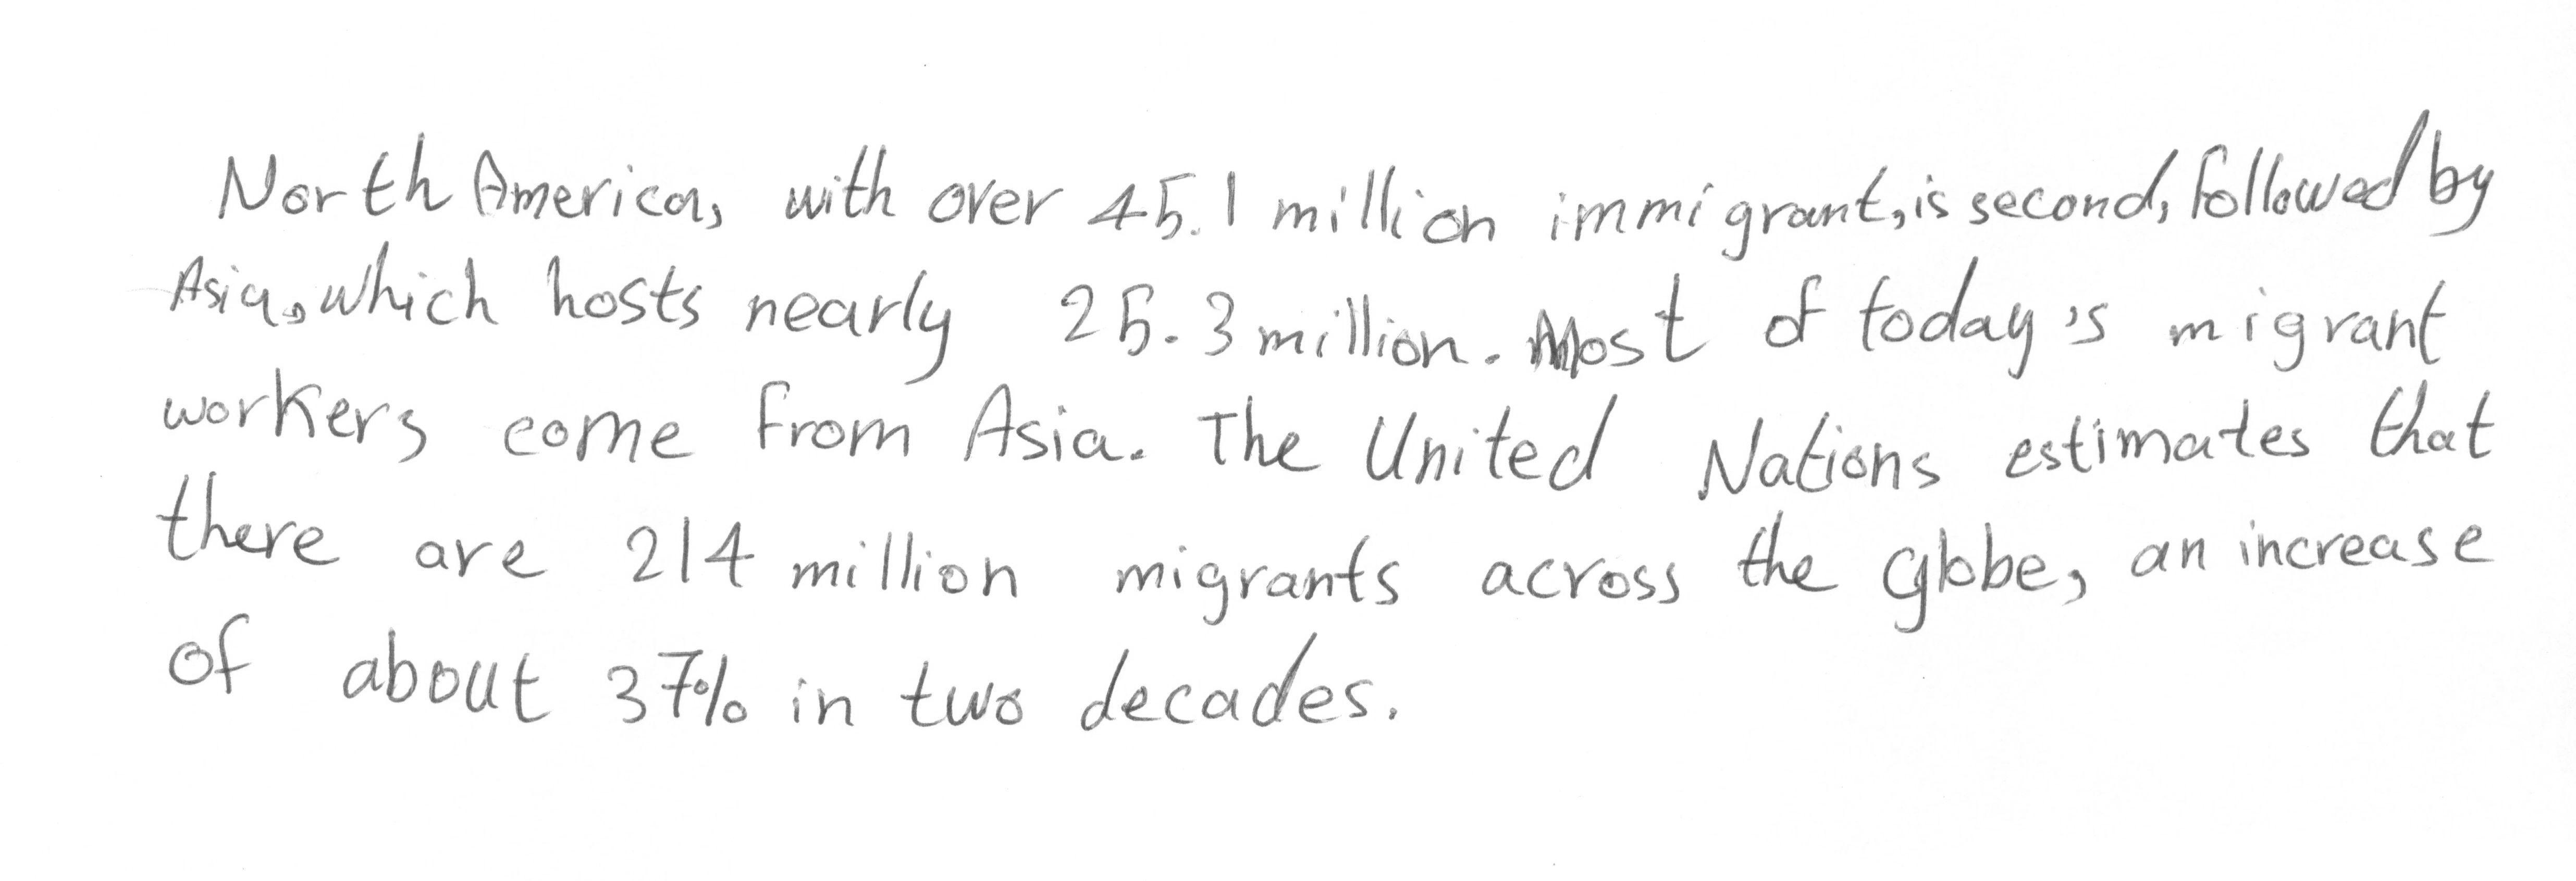 North America, with over 45.1 million immigrant, is second, followed by
Asia, which hosts nearly 25.3 million. Most of today's migrant
workers come from Asia. The United Nations estimates that
there are 214 million migrants across the globe, an increase
of about 37% in two decades.